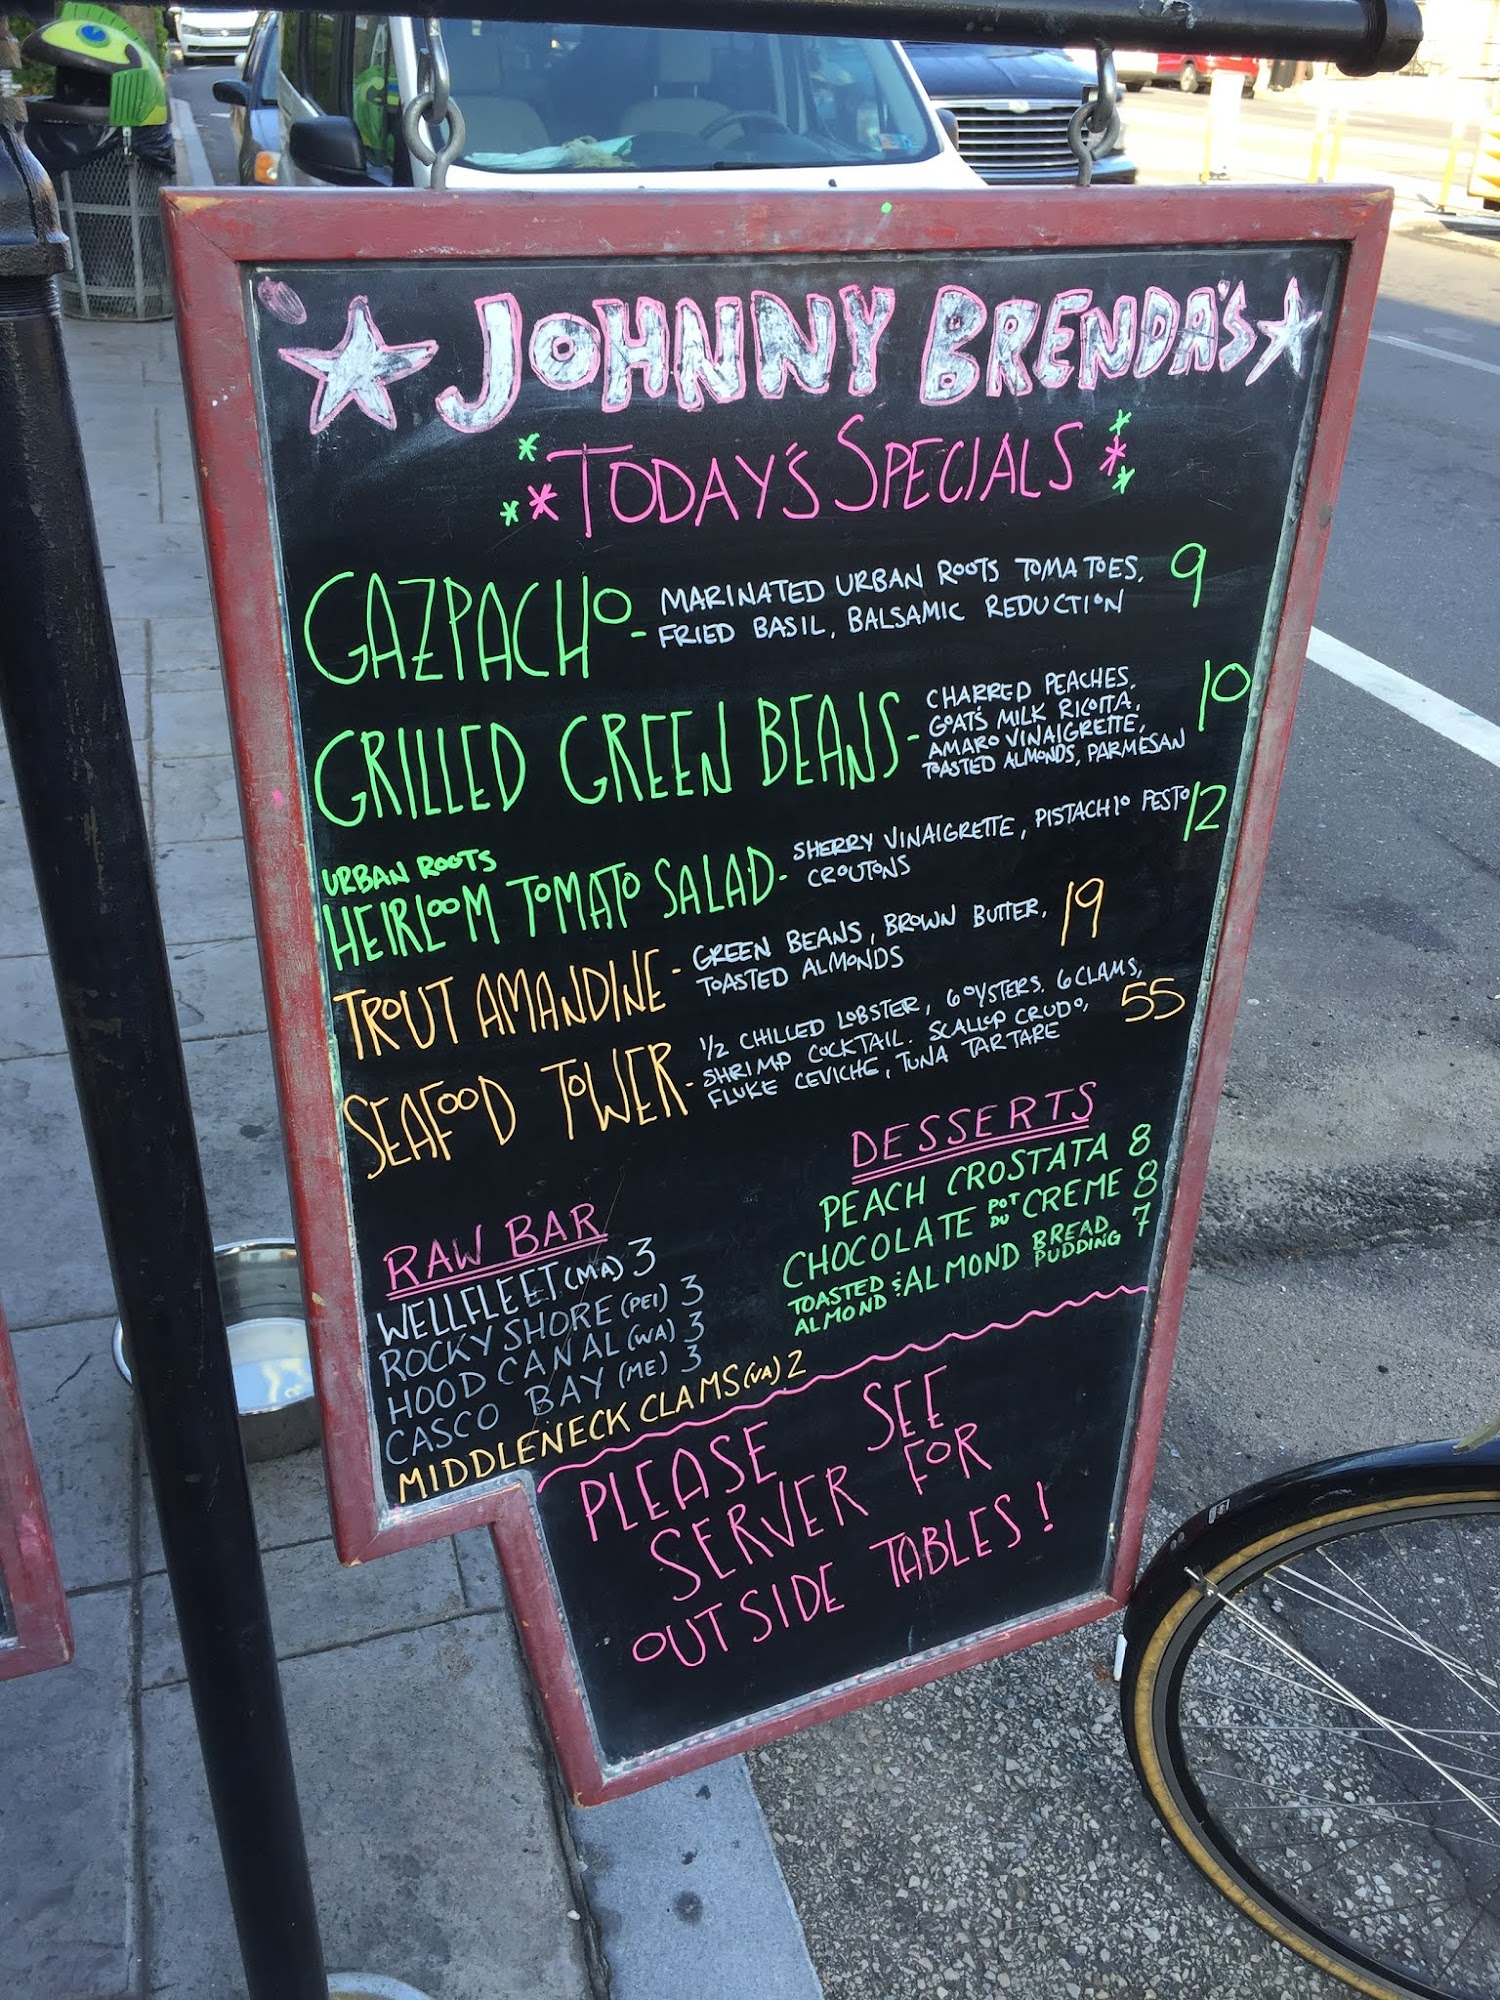 JOHNNY BRENDA'S
TODAY'S SPECIALS
GAZPACHO - MARINATED URBAN ROOTS TOMATOES, 9
FRIED BASIL, BALSAMIC REDUCTION
GRILLED GREEN BEANS - CHARRED PEACHES, 10
GOAT'S MILK RICOTTA,
AMARO VINAIGRETTE,
TOASTED ALMONDS, PARMESAN
URBAN ROOTS
HEIRLOOM TOMATO SALAD - SHERRY VINAIGRETTE, PISTACHIO PESTO 12
CROUTONS
TROUT AMANDINE - GREEN BEANS, BROWN BUTTER, 19
TOASTED ALMONDS
SEAFOOD TOWER - 1/2 CHILLED LOBSTER, 6 OYSTERS, 6 CLAMS, 55
SHRIMP COCKTAIL, SCALLOP CRUDO,
FLUKE CEVICHE, TUNA TARTARE
DESSERTS
PEACH CROSTATA 8
CHOCOLATE POT DU CREME 8
TOASTED ALMOND & ALMOND BREAD PUDDING 7
RAW BAR
WELLFLEET (MA) 3
ROCKY SHORE (PEI) 3
HOOD CANAL (WA) 3
CASCO BAY (ME) 3
MIDDLENECK CLAMS (VA) 2
PLEASE SEE
SERVER FOR
OUTSIDE TABLES!